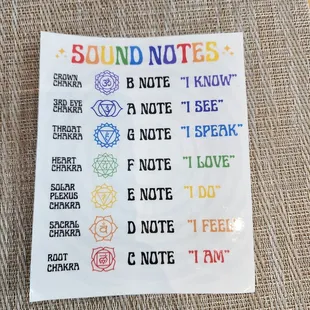 SOUND NOTES
CROWN CHAKRA B NOTE "I KNOW"
3RD EYE CHAKRA A NOTE "I SEE"
THROAT CHAKRA G NOTE "I SPEAK"
HEART CHAKRA F NOTE "I LOVE"
SOLAR PLEXUS CHAKRA E NOTE "I DO"
SACRAL CHAKRA D NOTE "I FEEL"
ROOT CHAKRA C NOTE "I AM"